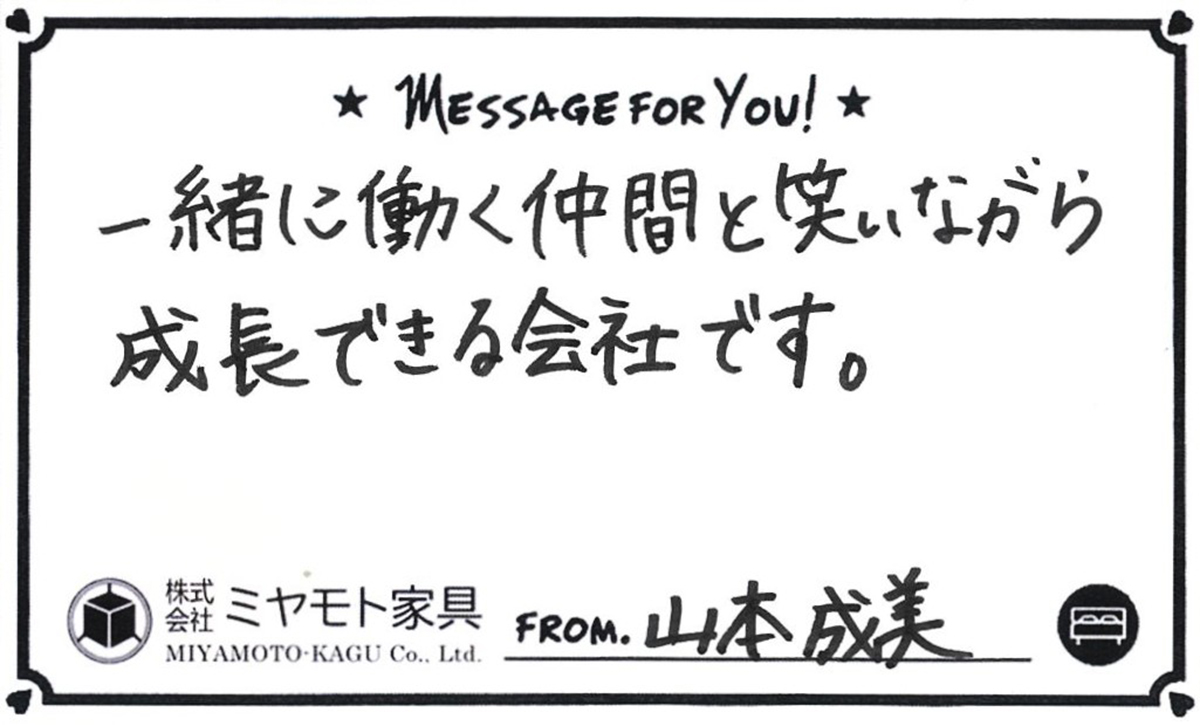 ★ MESSAGE FOR YOU! ★
一緒に働く仲間と笑いながら
成長できる会社です。
株式会社 ミヤモト家具
MIYAMOTO-KAGU Co., Ltd.
FROM. 山本成美